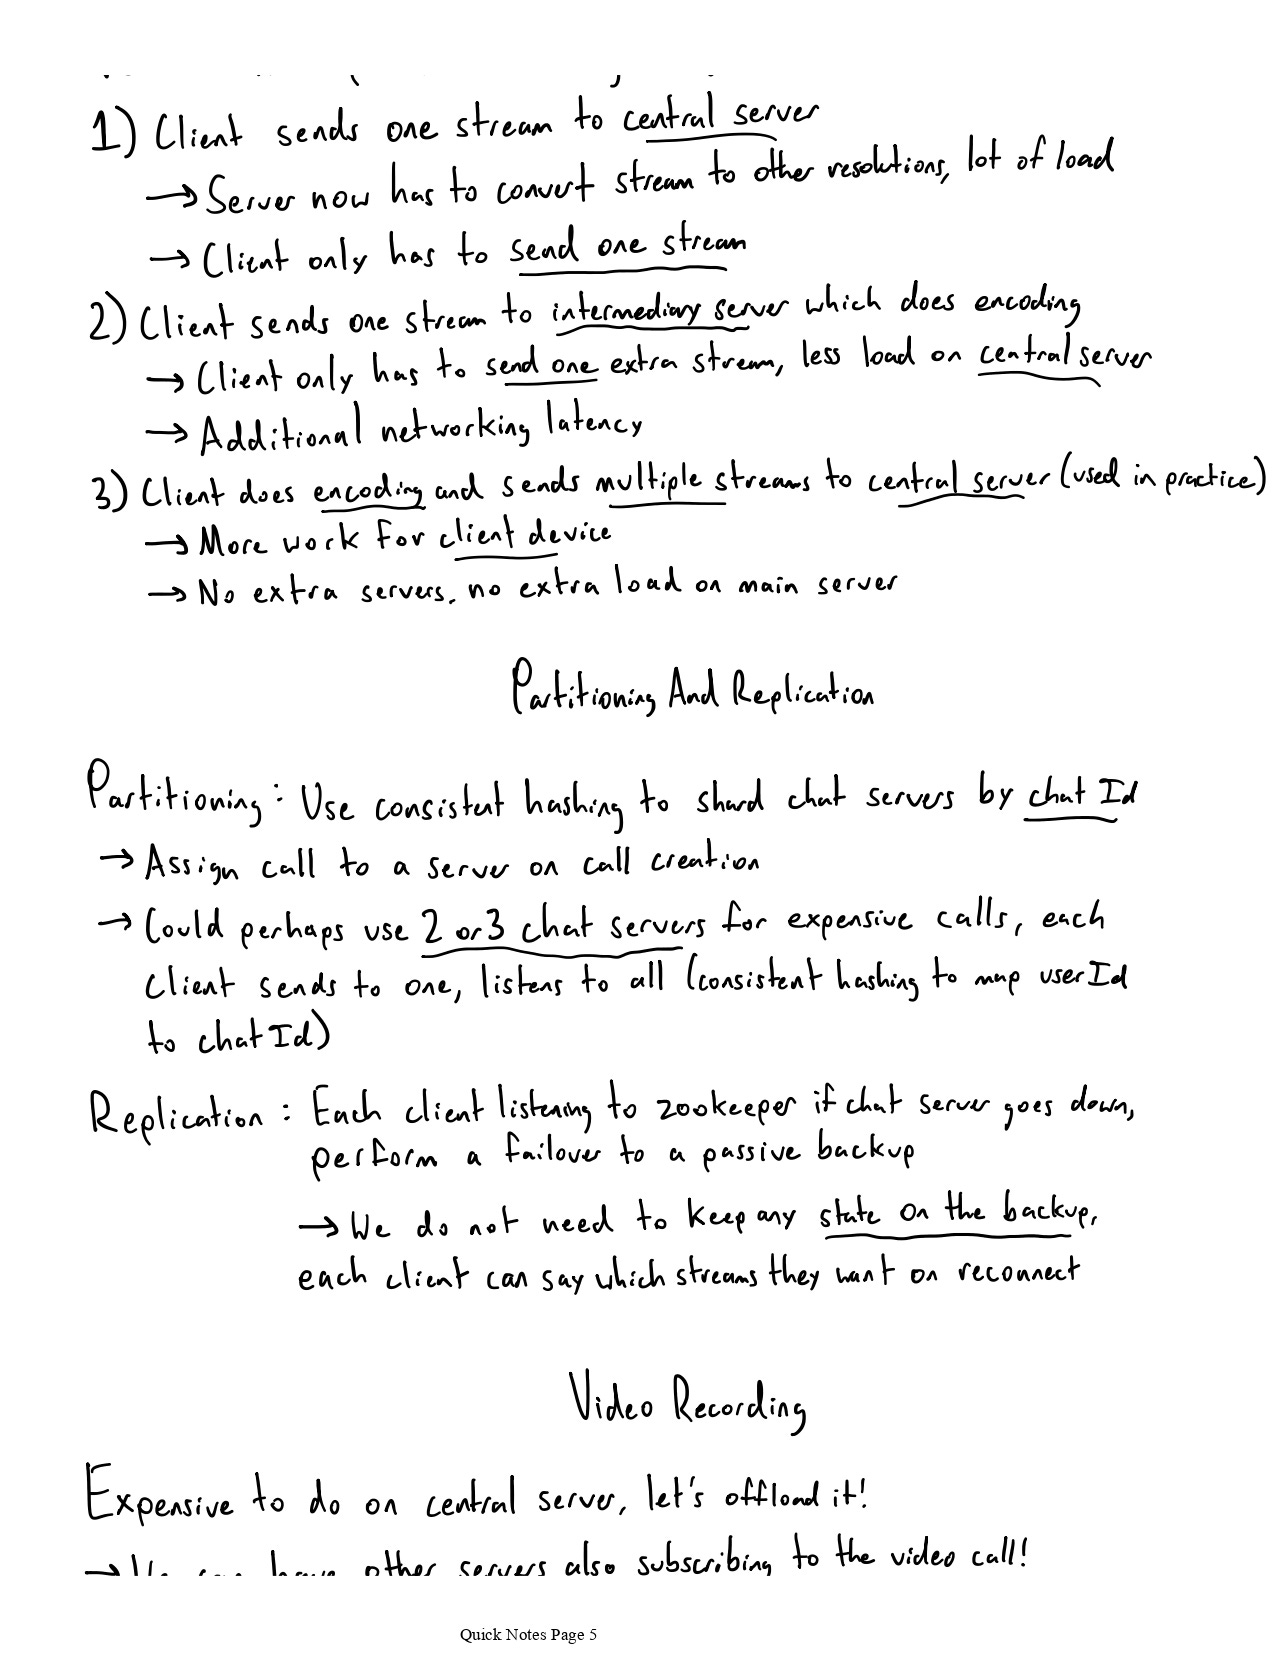 1) Client sends one stream to central server
→ Server now has to convert stream to other resolutions, lot of load
→ Client only has to send one stream
2) Client sends one stream to intermediary server which does encoding
→ Client only has to send one extra stream, less load on central server
→ Additional networking latency
3) Client does encoding and sends multiple streams to central server (used in practice)
→ More work for client device
→ No extra servers, no extra load on main server
Partitioning And Replication
Partitioning: Use consistent hashing to shard chat servers by chat Id
→ Assign call to a server on call creation
→ Could perhaps use 2 or 3 chat servers for expensive calls, each
client sends to one, listens to all (consistent hashing to map userId
to chatId)
Replication: Each client listening to zookeeper if chat server goes down,
perform a failover to a passive backup
→ We do not need to keep any state on the backup,
each client can say which streams they want on reconnect
Video Recording
Expensive to do on central server, let's offload it!
→ We can have other servers also subscribing to the video call!
Quick Notes Page 5